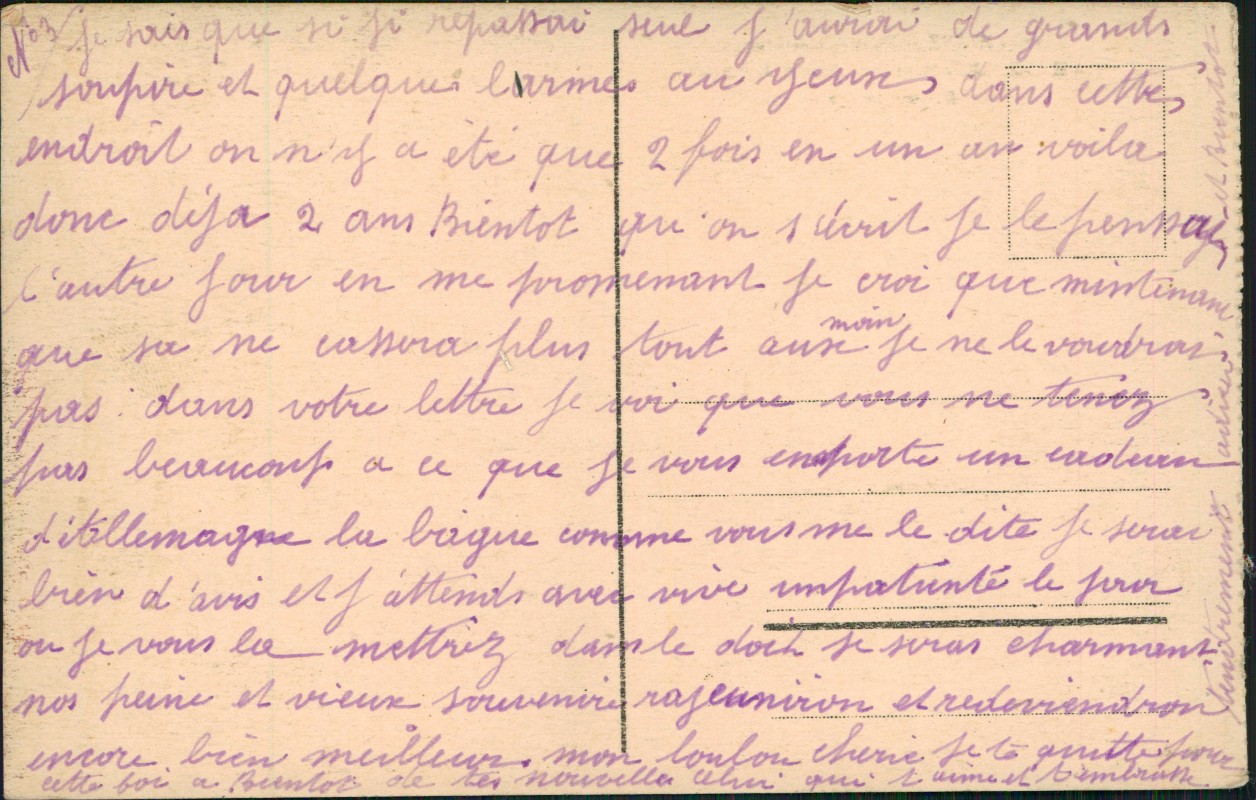 N° 3 Je sais que si ji repassai seul j'aurai de grands
soupire et quelque larmes au yeuxs dans cettes
endroit on n'y a été que 2 fois en un an voila
donc déja 2 ans Bientot qu'on s'écrit je le pensais
l'autre jour en me promenant je croi que mintenant
que sa ne cassera plus tout aux moin je ne le voudrais
pas. dans votre lettre je voi que vous ne tenez
pas beaucoup a ce que je vous emporte un cadeau
d'Allemagne la bague comme vous me le dite je serai
bien d'avis et j'attends avec vive impatiente le jour
ou je vous la mettrez dans le doit se seras charmant
nos peine et vieux souvenire rajeuniron et redeviendron
encore bien meilleur. mon loulou cherie je te quitte pour
cette foi a Bientot de tes nouvella celui qui t'aime et t'embrasse
Tendrement adieu et Bientot